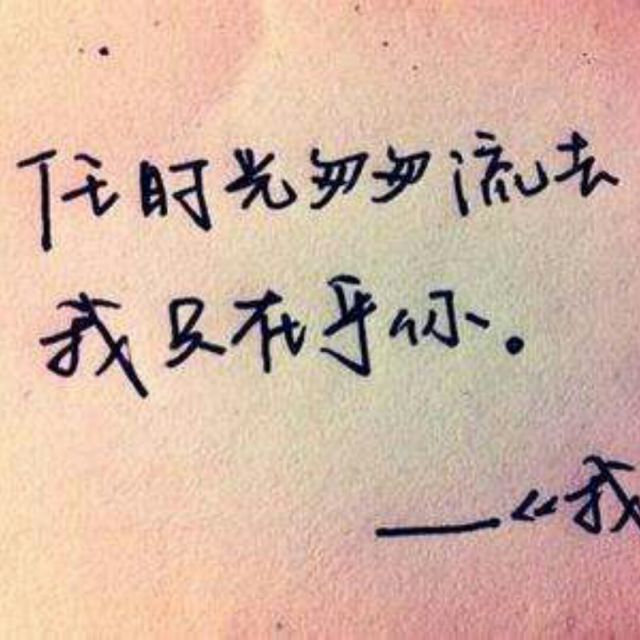 任时光匆匆流去
我只在乎你。
——《我